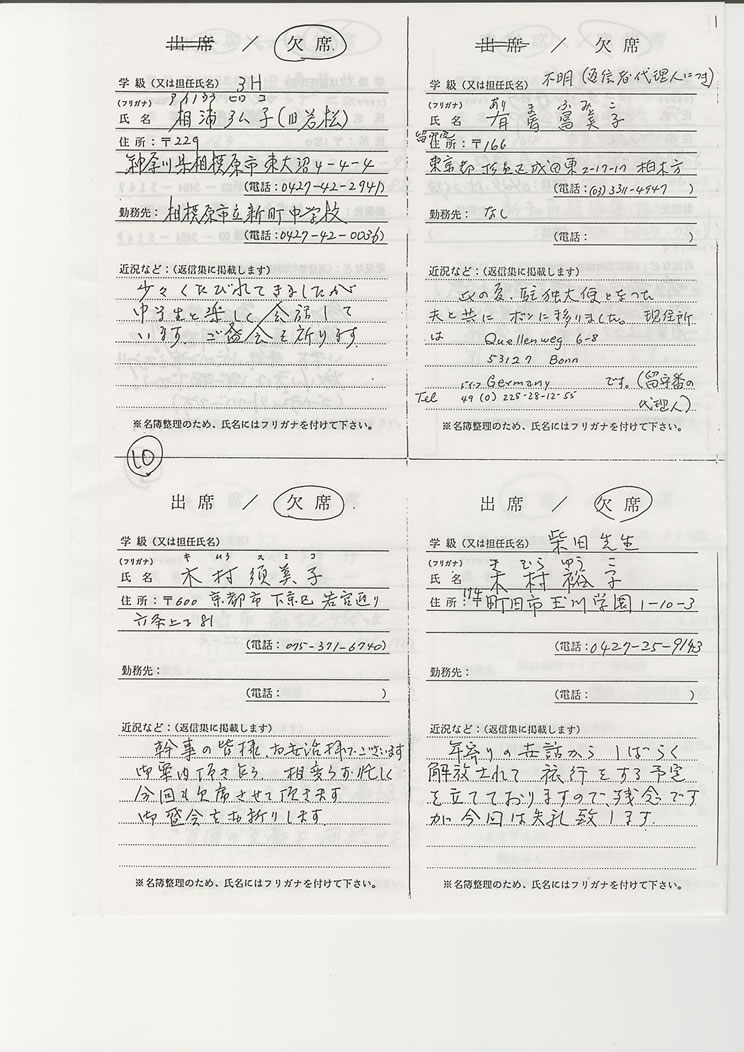 出席 / 欠席
学級（又は担任氏名） 3H
(フリガナ) アイノウラ ヒロコ
氏名 相浦弘子(旧若松)
住所：〒229
神奈川県相模原市東大沼4-4-4
(電話：0427-42-2941)
勤務先：相模原市立新町中学校
(電話：0427-42-0036)
近況など：（返信集に掲載します）
少々くたびれてきましたが
中学生と楽しく会話して
います。ご盛会を祈ります
※名簿整理のため、氏名にはフリガナを付けて下さい。
11
出席 / 欠席
学級（又は担任氏名） 不明(返信者代理人につき)
(フリガナ) ありま ふみこ
氏名 有馬富美子
留守宅
住所：〒166
東京都杉並区成田東2-17-17 柏木方
(電話：(03) 3311-4947)
勤務先： なし
(電話： )
近況など：（返信集に掲載します）
此の夏、駐独大使となった
夫と共に ボンに移りました。現住所
は Quellenweg 6-8
53127 Bonn
ドイツ Germany です。(留守番の
Tel 49 (0) 225-28-12-55 代理人)
※名簿整理のため、氏名にはフリガナを付けて下さい。
10
出席 / 欠席
学級（又は担任氏名）
(フリガナ) きむら すみこ
氏名 木村須美子
住所：〒600 京都市下京区若宮通り
六条上る81
(電話：075-371-6740)
勤務先：
(電話： )
近況など：（返信集に掲載します）
幹事の皆様、お世話様でございます
御案内頂き乍ら 相変らず忙しく
今回も欠席させて頂きます
御盛会をお祈りします
※名簿整理のため、氏名にはフリガナを付けて下さい。
出席 / 欠席
学級（又は担任氏名） 柴田先生
(フリガナ) きむら ゆうこ
氏名 木村裕子
住所：〒194 町田市玉川学園1-10-3
(電話：0427-25-9143
勤務先：
(電話： )
近況など：（返信集に掲載します）
年寄りの世話から しばらく
解放されて 旅行をする予定
を立てておりますので、残念です
が今回は失礼致します.
※名簿整理のため、氏名にはフリガナを付けて下さい。